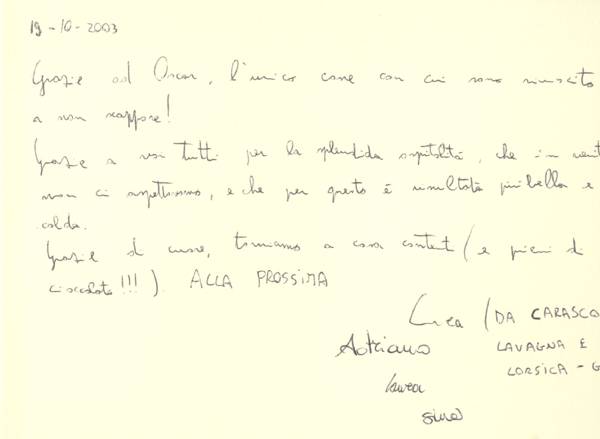 19-10-2003
Grazie ad Oscar, l'unico cane con cui sono riuscito
a non scappare!
Grazie a voi tutti per la splendida ospitalità, che in
non ci aspettavamo, e che per questo è risultata più bella e
calda.
Grazie di cuore, torniamo a casa content (e pieni di
cioccolato!!!). ALLA PROSSIMA
Luca (DA CARASCO
Adriano LAVAGNA E
laura CORSICA - G